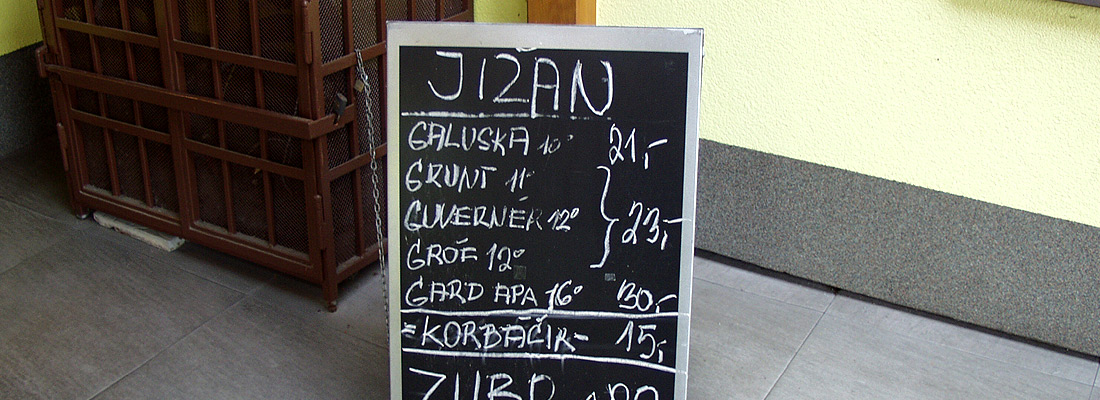 JIŽAN
GALUSKA 10° 21,-
GRUNT 11°
GUVERNÉR 12° 23,-
GRÓF 12°
GARD APA 16° 30,-
=KORBÁČIK- 15,-